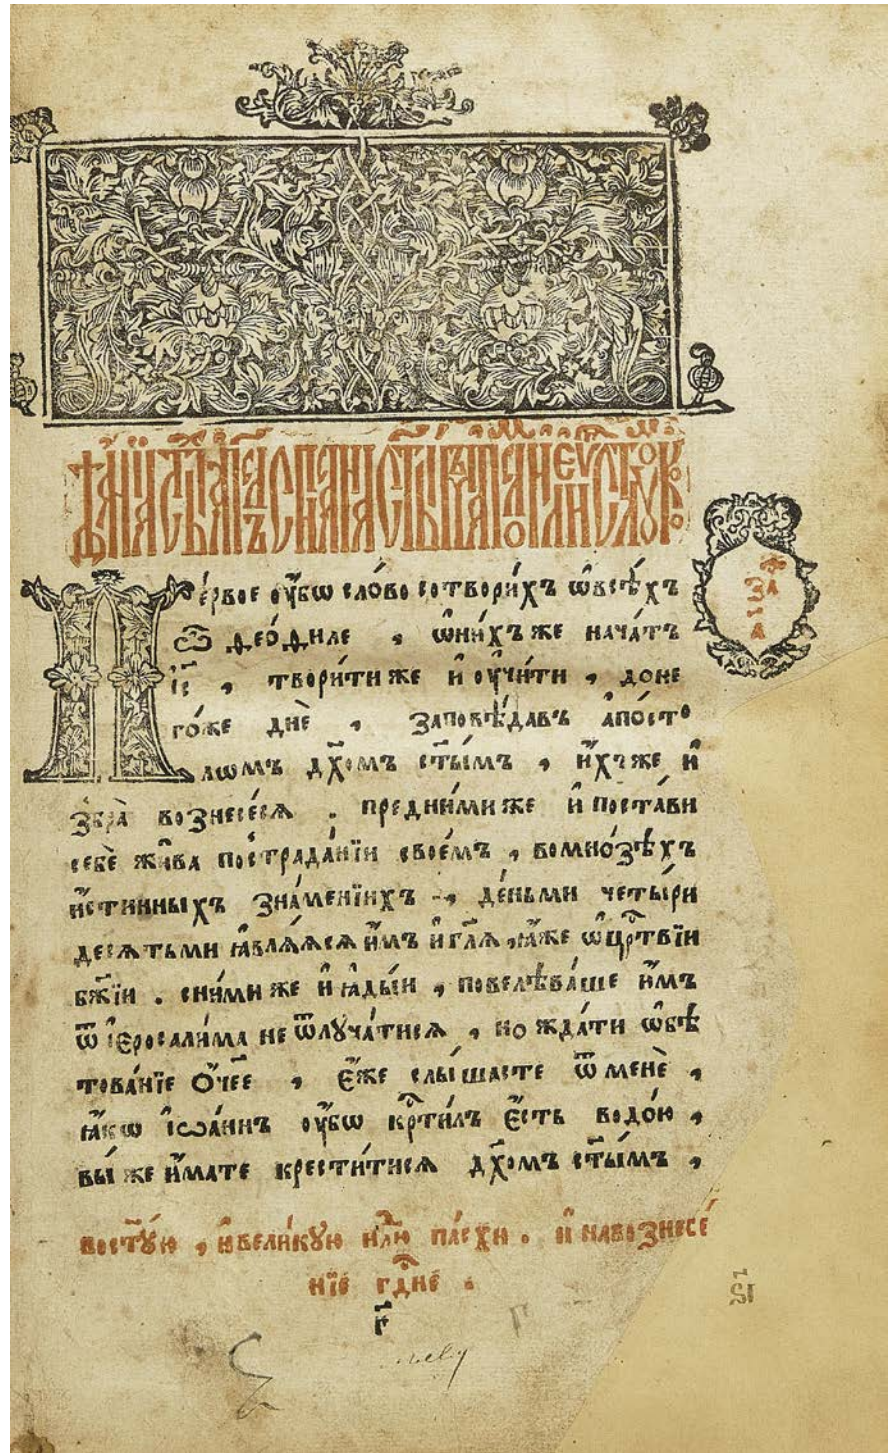 Пе́рвое ᲂу҆́бѡ сло́во сотвори́хъ ѡ҆всѣ́хъ
ѽ ѳео́ѳиле , ѡ҆ни́хъже нача́тъ
і҆и҃съ , твори́тиже и҆ ᲂу҆чи́ти , доне
го́же днѐ , заповѣ́давъ а҆по́сто
лѡмъ дх҃омъ ст҃ы́мъ , и҆́хъже и҆
збра̀ вознесе́сѧ . преднимиже и҆ поста́ви
себѐ жи́ва пострада́нїи свое́мъ , вомно́зѣхъ
и҆́стинныхъ зна́менїихъ , де́ньми четы́ри
десѧтьми ꙗ҆влѧ́ѧсѧ и҆̀мъ и҆ гл҃ѧ , ꙗ҆́же ѡ҆ црⷭ҇твїи
бж҃їи . снимиже и҆ ꙗ҆ды́и , повелѣва́ше и҆̀мъ
ѿ і҆еросали́ма не ѿлуча́тисѧ , но жда́ти ѡ҆бѣ
това́нїе Ѻ҆́чее , є҆́же слы́шасте ѿ менѐ ,
ꙗ҆́кѡ і҆ѡа́ннъ ᲂу҆́бѡ крⷭ҇ти́лъ є҆́сть водо́ю ,
вы́ же и҆́мате крести́тисѧ дх҃омъ ст҃ы́мъ ,
вост҃ꙋ́ю , и҆вели́кꙋю нлⷣю па́схи . и҆ навознесе́
нїе гдⷭ҇не .
г҃